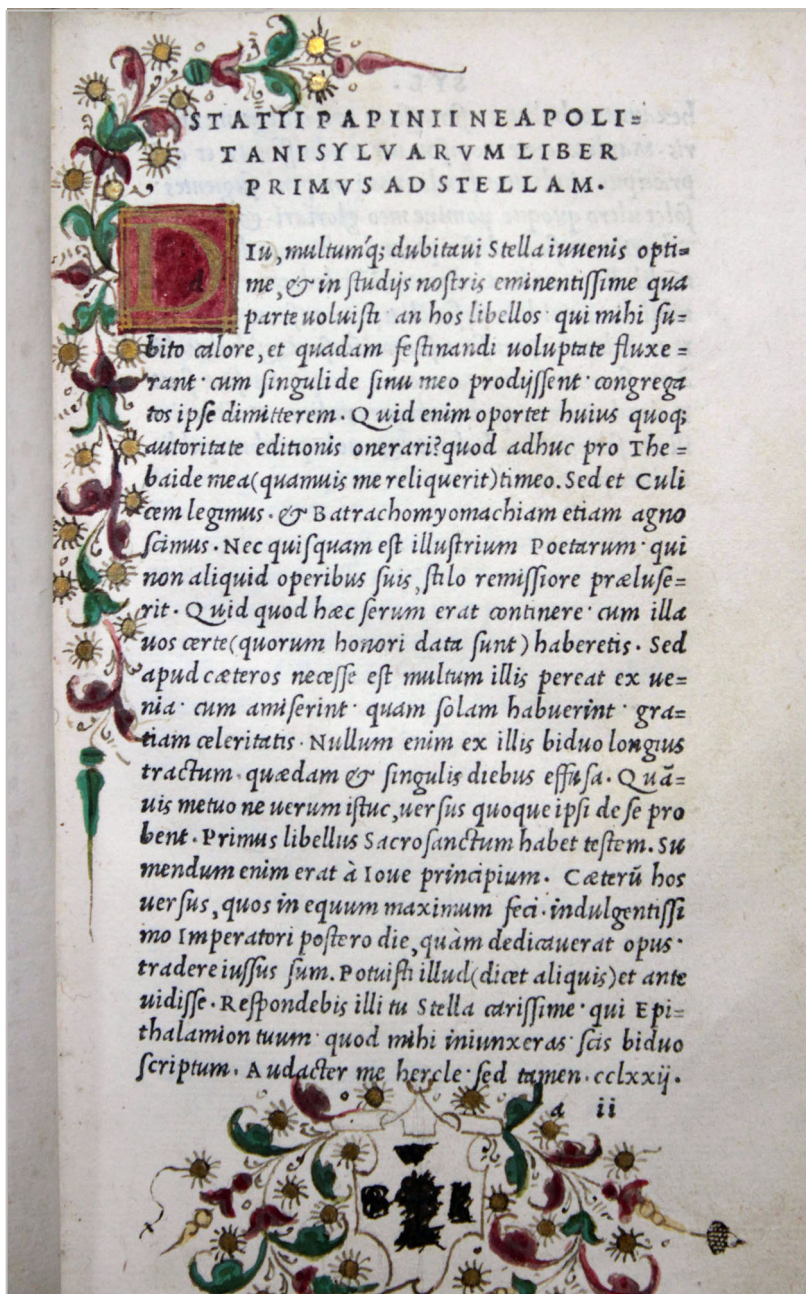 STATII PAPINII NEAPOLI=
TANI SYLVARVM LIBER
PRIMVS AD STELLAM.
DIu, multumq́; dubitaui Stella iuuenis opti=
me, & in studijs nostris eminentissime qua
parte uoluisti an hos libellos qui mihi su=
bito calore, et quadam festinandi uoluptate fluxe=
rant· cum singuli de sinu meo prodijssent· congrega
tos ipse dimitterem. Quid enim oportet huius quoq;
autoritate editionis onerari? quod adhuc pro The=
baide mea (quamuis me reliquerit) timeo. Sed et Culi
cem legimus. & Batrachomyomachiam etiam agno
scimus. Nec quisquam est illustrium Poetarum· qui
non aliquid operibus suis, stilo remissiore præluse=
rit. Quid quod hæc serum erat continere· cum illa
uos certe (quorum honori data sunt) haberetis. Sed
apud cæteros necesse est multum illis pereat ex ue=
nia· cum amiserint· quam solam habuerint· gra=
tiam celeritatis. Nullum enim ex illis biduo longius
tractum· quædam & singulis diebus effusa. Quã=
uis metuo ne uerum istuc, uersus quoque ipsi de se pro
bent. Primus libellus Sacrosanctum habet testem. Su
mendum enim erat à Ioue principium. Cæterũ hos
uersus, quos in equum maximum feci· indulgentissi
mo Imperatori postero die, quàm dedicauerat opus·
tradere iussus sum. Potuisti illud (dicet aliquis) et ante
uidisse. Respondebis illi tu Stella carissime· qui Epi=
thalamion tuum· quod mihi iniunxeras· scis biduo
scriptum. Audacter me hercle· sed tamen. cclxxij.
a ii